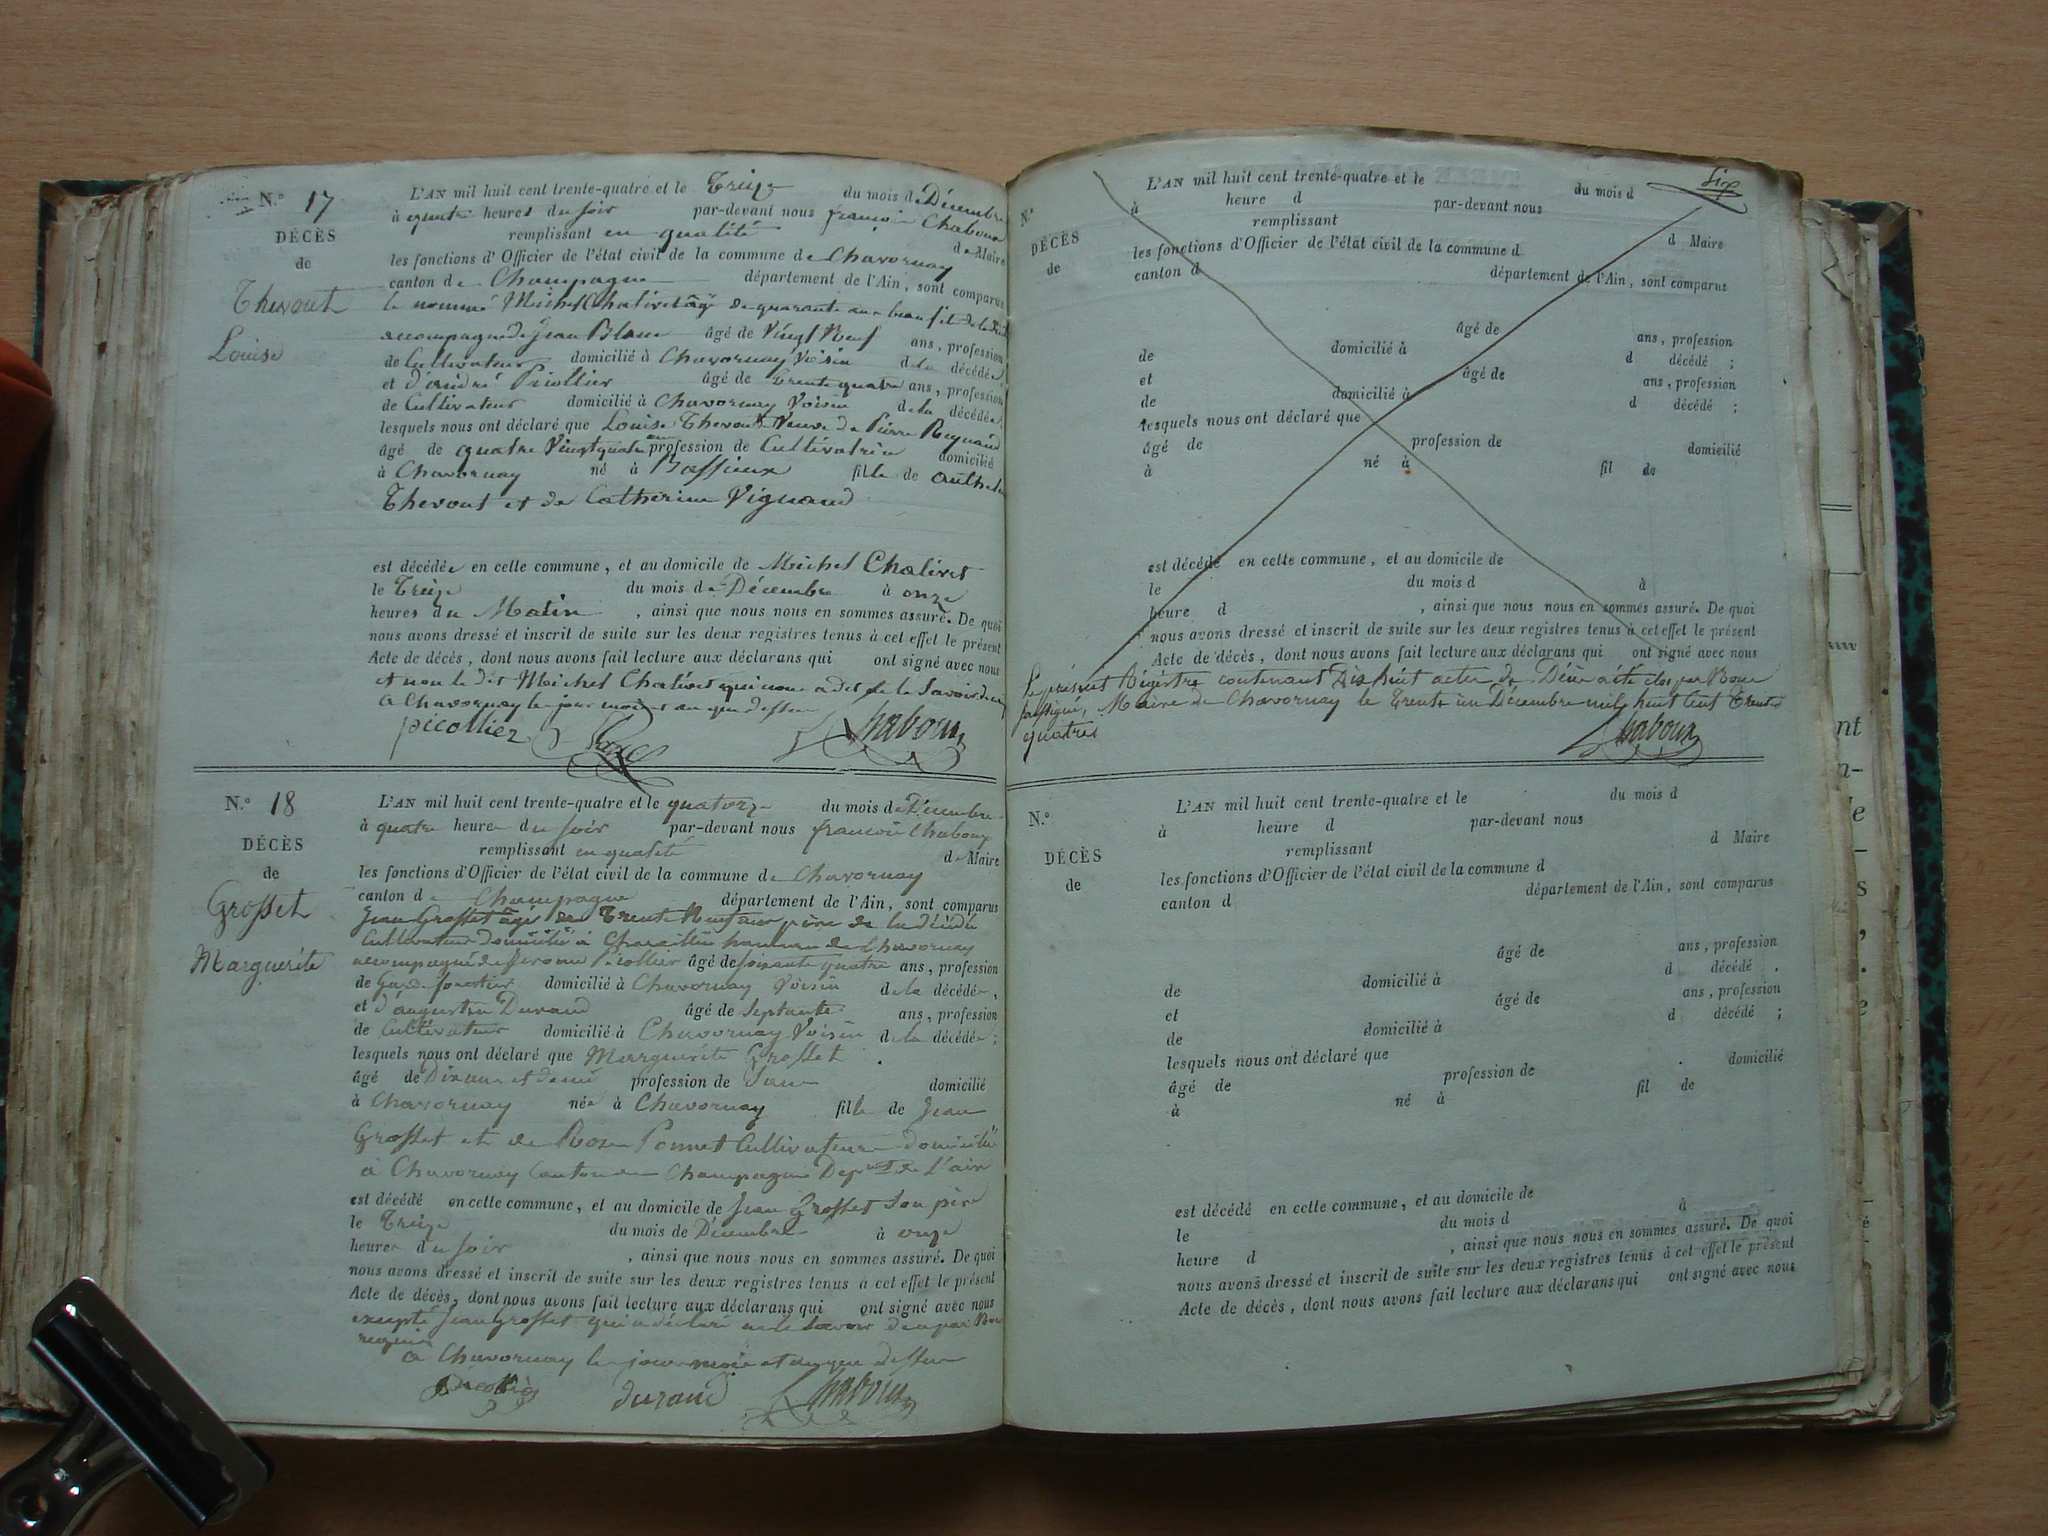 N.° 17
DÉCÈS
de
Thevout
Louise
L'AN mil huit cent trente-quatre et le Treize du mois de Décembre
à quatre heures du soir par-devant nous françois Chaboux
remplissant en qualité de Maire
les fonctions d'Officier de l'état civil de la commune de Chavornay
canton de Champagne département de l'Ain, sont comparus
le nommé Michel Chalivet âgé de quarante ans beau fils de la
accompagné de Jean Blanc âgé de Vingt Neuf ans, profession
de Cultivateur domicilié à Chavornay Voisin de la décédée
et d'andré Picollier âgé de trente quatre ans, profession
de Cultivateur domicilié à Chavornay Voisin de la décédée;
lesquels nous ont déclaré que Louise Thevout Veuve de Pierre Reynaud
âgé de quatre Vingt quatre ans profession de Cultivatrice domicilié
à Chavornay né à fille de
Thevout et de Catherine Vignand
est décédée en cette commune, et au domicile de Michel Chalivet
le Treize du mois de Décembre à onze
heures du Matin, ainsi que nous nous en sommes assuré. De quoi
nous avons dressé et inscrit de suite sur les deux registres tenus à cet effet le présent
Acte de décès, dont nous avons fait lecture aux déclarans qui ont signé avec nous
et non le dit Michel Chalivet qui nous a dit ne le Savoir
à Chavornay les jour mois et an que dessus
picollier Blanc Chaboux
N.° 18
DÉCÈS
de
Grosset
Marguerite
L'AN mil huit cent trente-quatre et le quatorze du mois de Décembre
à quatre heure du soir par-devant nous francois Chaboux
remplissant en qualité de Maire
les fonctions d'Officier de l'état civil de la commune de Chavornay
canton de Champagne département de l'Ain, sont comparus
Jean Grosset âgé de Trente Neuf ans père de la décédée
Cultivateur domicilié à hameau de Chavornay
accompagné de Jerome Picollier âgé de soixante quatre ans, profession
de Garde forestier domicilié à Chavornay Voisin de la décédée,
et d'augustin Durand âgé de Septante ans, profession
de Cultivateur domicilié à Chavornay Voisin de la décédée;
lesquels nous ont déclaré que Marguerite Grosset
âgé de Dix ans et demi profession de Sans domicilié
à Chavornay née à Chavornay fille de Jean
Grosset et de Rose Ponnet Cultivateurs domiciliés
à Chavornay Canton de Champagne Dep.nt de L'ain
est décédé en cette commune, et au domicile de Jean Grosset Son père
le Treize du mois de Décembre à onze
heure du soir, ainsi que nous nous en sommes assuré. De quoi
nous avons dressé et inscrit de suite sur les deux registres tenus à cet effet le présent
Acte de décès, dont nous avons fait lecture aux déclarans qui ont signé avec nous
excepté Jean Grosset qui a déclaré ne le Savoir de ce par Nous
requis
à Chavornay les jour mois et an que dessus
Picollier durand Chaboux
Six
N.°
DÉCÈS
de
L'AN mil huit cent trente-quatre et le du mois d
à heure d par-devant nous
remplissant d Maire
les fonctions d'Officier de l'état civil de la commune d
canton d département de l'Ain, sont comparus
âgé de ans, profession
de domicilié à d décédé;
et âgé de ans, profession
de domicilié à d décédé;
lesquels nous ont déclaré que
âgé de profession de domicilié
à né à fil de
est décédé en cette commune, et au domicile de
le du mois d à
heure d, ainsi que nous nous en sommes assuré. De quoi
nous avons dressé et inscrit de suite sur les deux registres tenus à cet effet le présent
Acte de décès, dont nous avons fait lecture aux déclarans qui ont signé avec nous
Le présent Régistre contenant Dix huit actes de Décès a été clos par Nous
soussigné, Maire de Chavornay le Trente un Décembre mil huit cent Trente
quatres
Chaboux
N.°
DÉCÈS
de
L'AN mil huit cent trente-quatre et le du mois d
à heure d par-devant nous
remplissant d Maire
les fonctions d'Officier de l'état civil de la commune d
canton d département de l'Ain, sont comparus
âgé de ans, profession
de domicilié à d décédé
et âgé de ans, profession
de domicilié à d décédé;
lesquels nous ont déclaré que
âgé de profession de domicilié
à né à fil de
est décédé en cette commune, et au domicile de
le du mois d à
heure d, ainsi que nous nous en sommes assuré. De quoi
nous avons dressé et inscrit de suite sur les deux registres tenus à cet effet le présent
Acte de décès, dont nous avons fait lecture aux déclarans qui ont signé avec nous